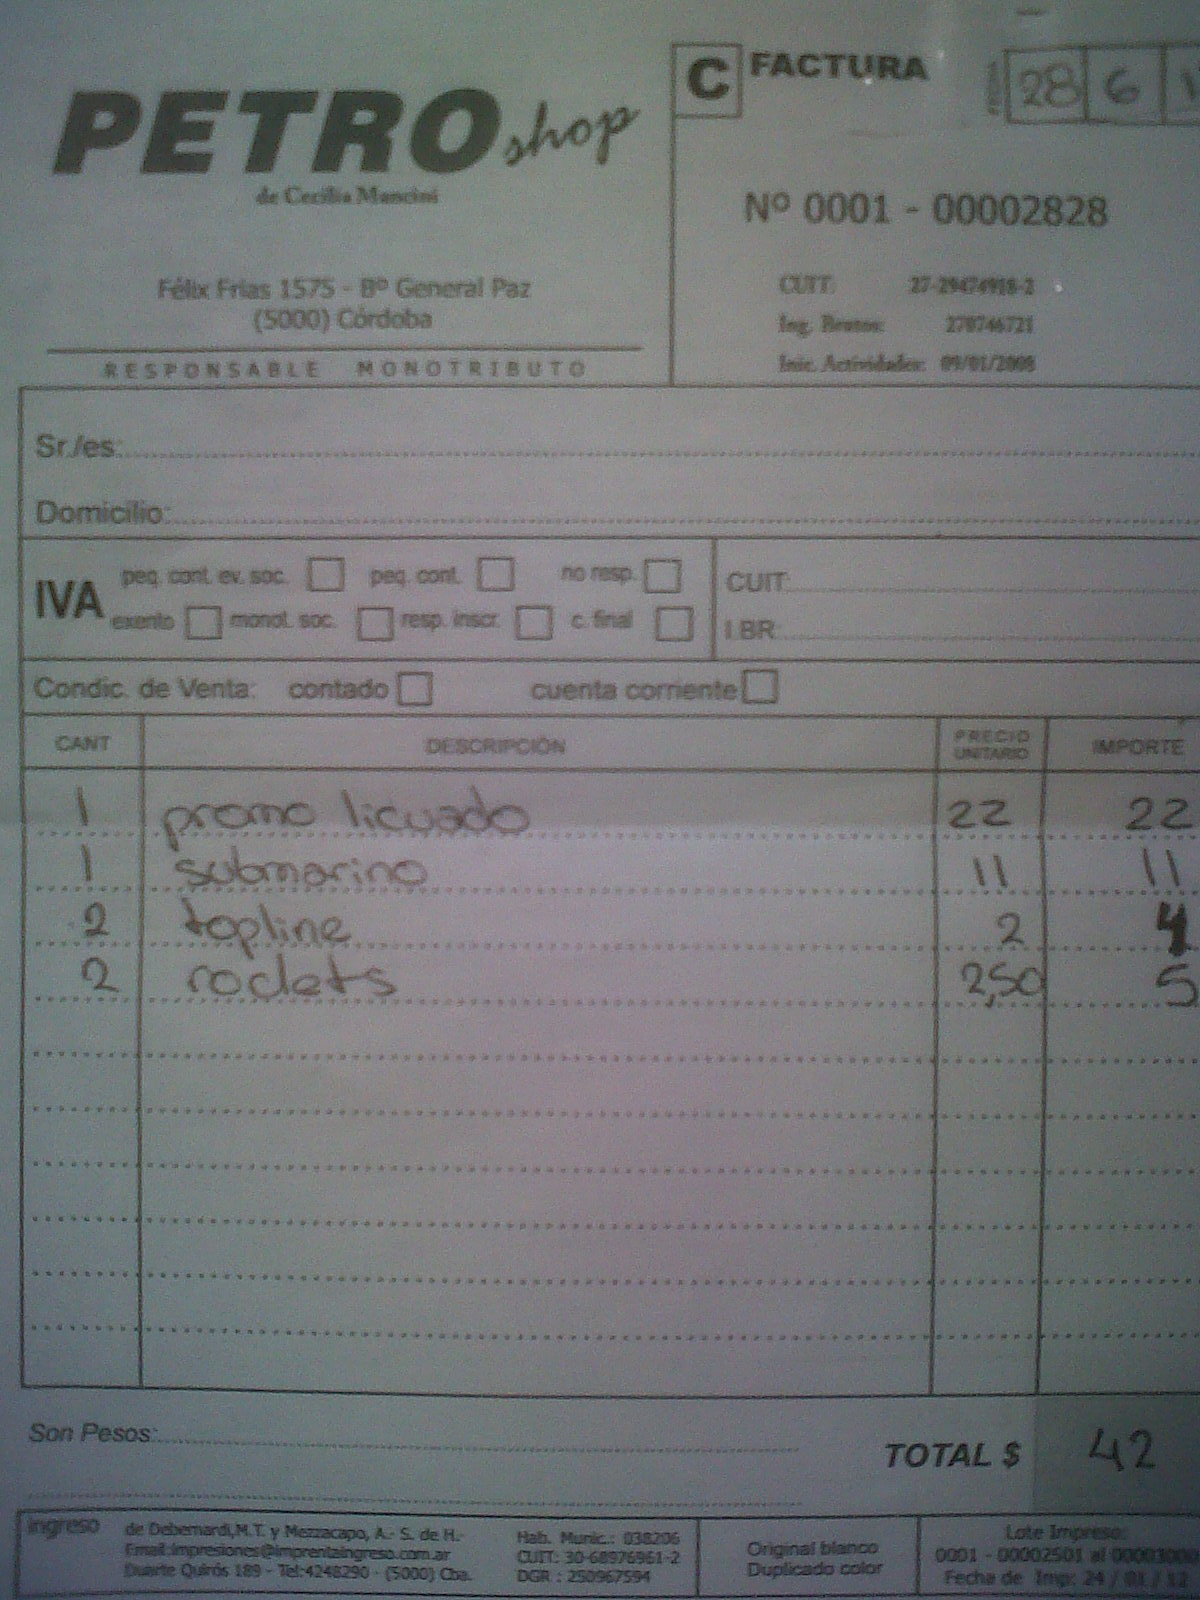 PETRO shop
de Cecilia Mancini
Félix Frias 1575 - Bº General Paz
(5000) Córdoba
RESPONSABLE MONOTRIBUTO
C FACTURA
28 6 1
Nº 0001 - 00002828
CUIT: 27-29474918-2
Ing. Brutos: 270746721
Inic. Actividades: 09/01/2008
Sr./es:
Domicilio:
IVA
peq. cont. ev. soc. peq. cont. no resp.
exento monot. soc. resp. inscr. c. final
CUIT:
I.BR:
Condic. de Venta: contado cuenta corriente
CANT DESCRIPCIÓN PRECIO UNITARIO IMPORTE
1 promo licuado 22 22
1 submarino 11 11
2 topline 2 4
2 roclets 2,50 5
Son Pesos:
TOTAL $ 42
ingreso
de Debernardi, M.T. y Mezzacapo, A.- S. de H.-
Email:impresiones@imprentaingreso.com.ar
Duarte Quirós 189 - Tel:4248290 - (5000) Cba.
Hab. Munic.: 038206
CUIT: 30-68976961-2
DGR : 250967594
Original blanco
Duplicado color
Lote Impreso:
0001 - 00002501 al 00003000
Fecha de Imp: 24 / 01 / 12